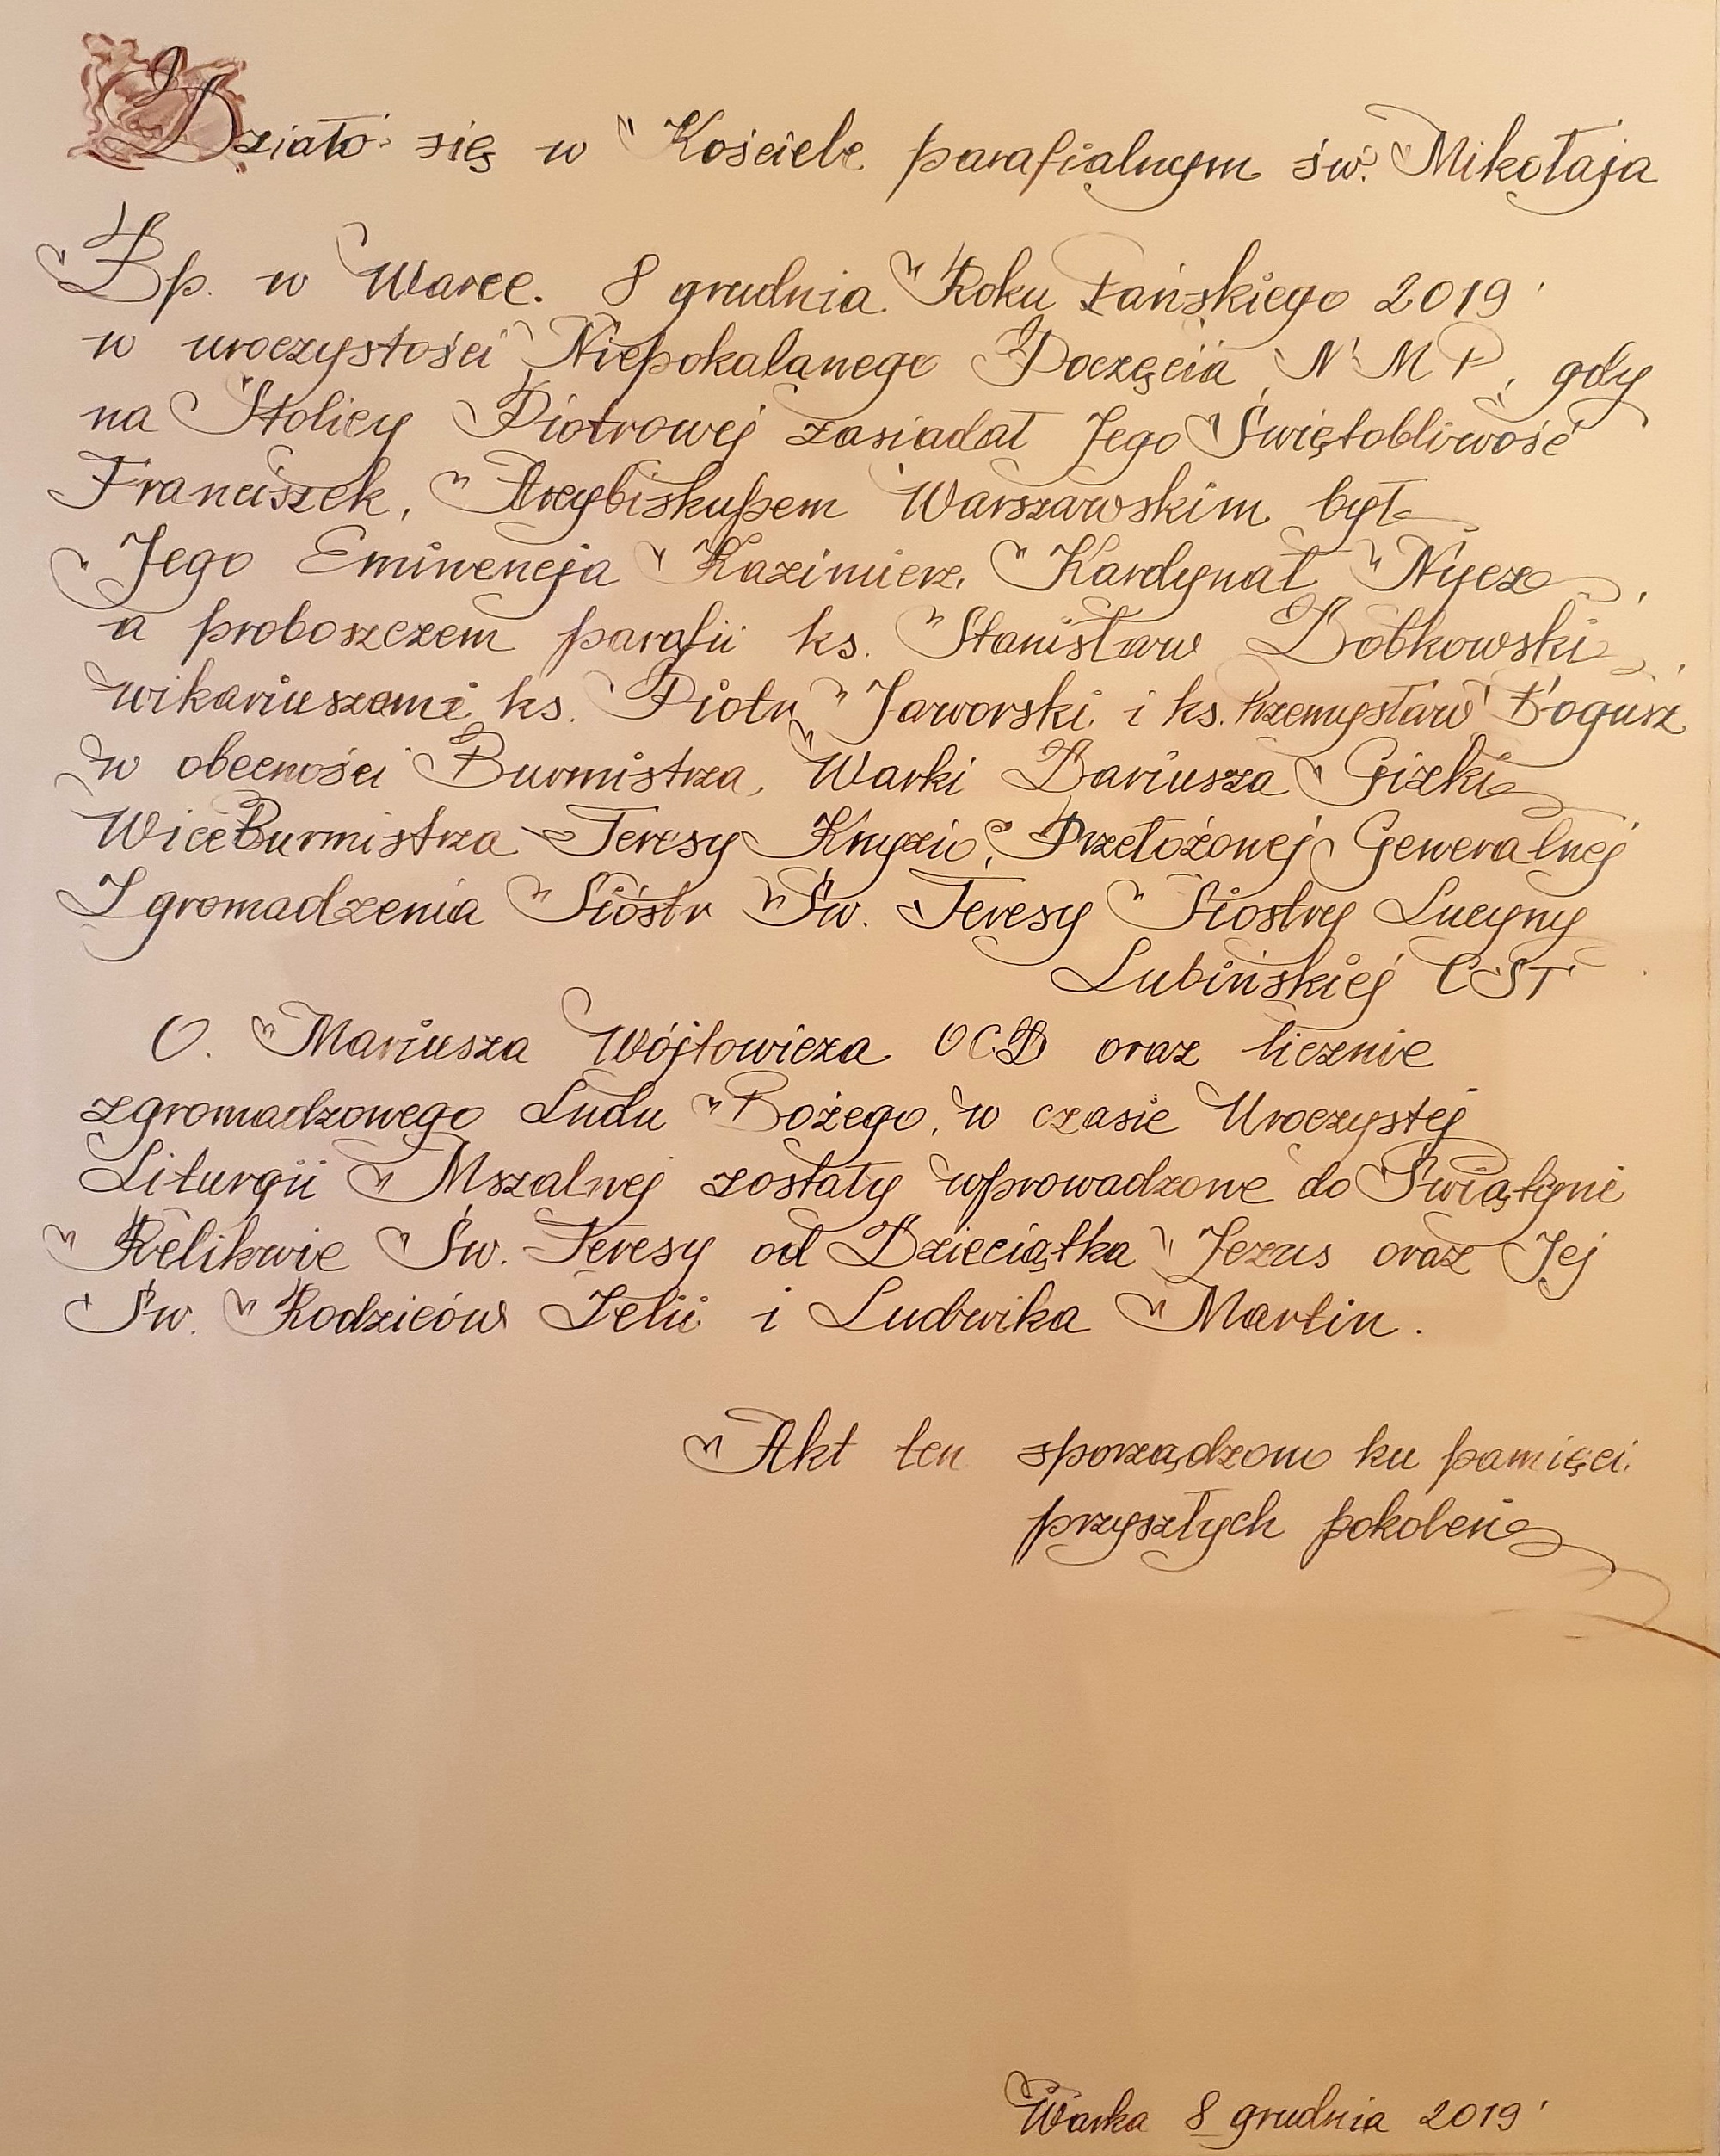 Działo się w Kościele parafialnym św. Mikołaja
Bp. w Warce. 8 grudnia Roku Pańskiego 2019
w uroczystości Niepokalanego Poczęcia N M P, gdy
na Stolicy Piotrowej zasiadał Jego Świętobliwość
Franciszek, Arcybiskupem Warszawskim był
Jego Eminencja Kazimierz Kardynał Nycz,
a proboszczem parafii ks. Stanisław Bobkowski,
wikariuszami ks. Piotr Jaworski i ks. Przemysław Bogusz
w obecności Burmistrza Warki Dariusza Gizki
WiceBurmistrza Teresy Knyzio, Przełożonej Generalnej
Zgromadzenia Sióstr Św. Teresy Siostry Lucyny
Lubińskiej CST
O. Mariusza Wójtowicza OCD oraz licznie
zgromadzonego Ludu Bożego, w czasie Uroczystej
Liturgii Mszalnej zostały wprowadzone do Świątyni
Relikwie Św. Teresy od Dzieciątka Jezus oraz Jej
Św. Rodziców Zelii i Ludwika Martin.
Akt ten sporządzono ku pamięci
przyszłych pokoleń
Warka 8 grudnia 2019